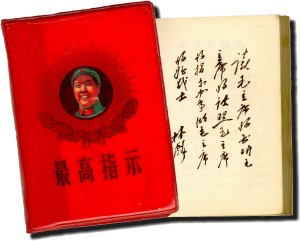 最高指示
读毛主席的书听毛
主席的话照毛主席
的指示办事做毛主席
的好战士
林彪